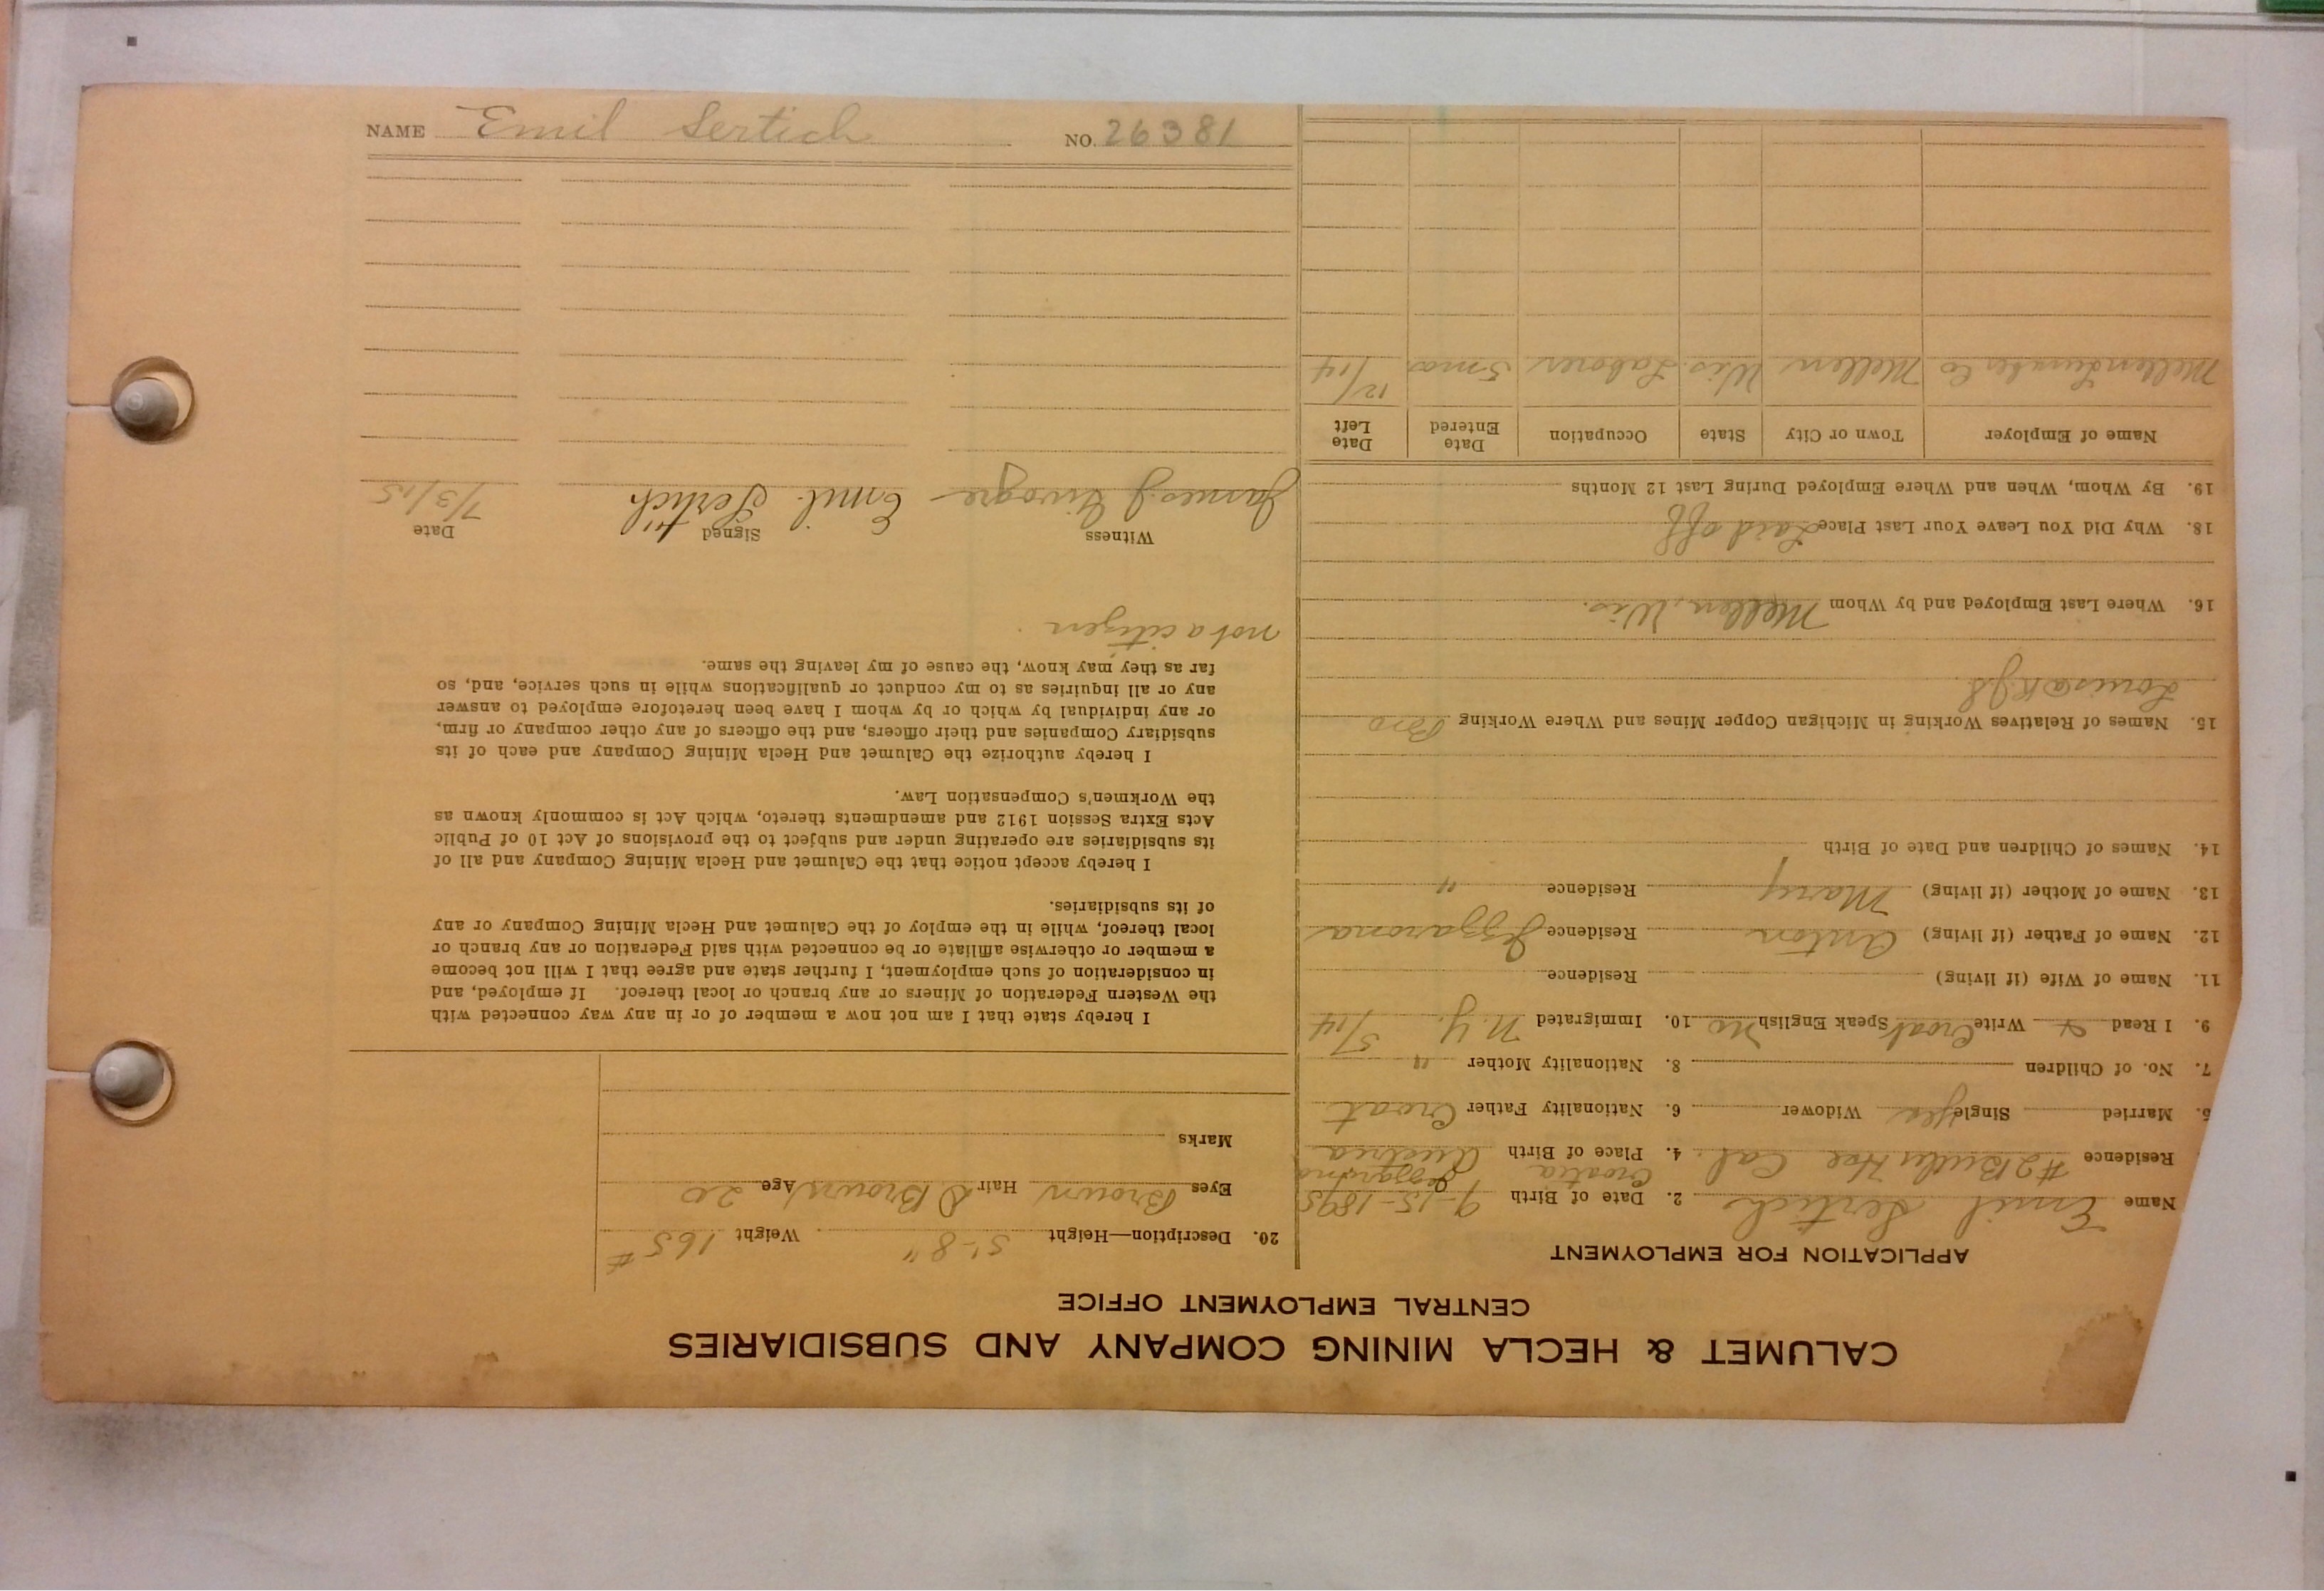 CALUMET & HECLA MINING COMPANY AND SUBSIDIARIES
CENTRAL EMPLOYMENT OFFICE
APPLICATION FOR EMPLOYMENT
Name Emil Sertich 2. Date of Birth 9-15-1895
Residence #2 Cal. 4. Place of Birth Croatia Austria
5. Married Single Yes Widower 6. Nationality Father Croat
7. No. of Children 8. Nationality Mother "
9. I Read & Write Croat Speak English No 10. Immigrated N.Y. 5/14
11. Name of Wife (if living) Residence
12. Name of Father (if living) Anton Residence
13. Name of Mother (if living) Mary Residence "
14. Names of Children and Date of Birth
15. Names of Relatives Working in Michigan Copper Mines and Where Working Bro
Louis
16. Where Last Employed and by Whom Mellen, Wis.
18. Why Did You Leave Your Last Place Laid off
19. By Whom, When and Where Employed During Last 12 Months
Name of Employer Town or City State Occupation Date Entered Date Left
Mellen Lumber Co Mellen Wis. Laborer 5 mos. 12/14
20. Description—Height 5'-8" Weight 165#
Eyes Brown Hair D Brown Age 20
Marks
I hereby state that I am not now a member of or in any way connected with
the Western Federation of Miners or any branch or local thereof. If employed, and
in consideration of such employment, I further state and agree that I will not become
a member or otherwise affiliate or be connected with said Federation or any branch or
local thereof, while in the employ of the Calumet and Hecla Mining Company or any
of its subsidiaries.
I hereby accept notice that the Calumet and Hecla Mining Company and all of
its subsidiaries are operating under and subject to the provisions of Act 10 of Public
Acts Extra Session 1912 and amendments thereto, which Act is commonly known as
the Workmen's Compensation Law.
I hereby authorize the Calumet and Hecla Mining Company and each of its
subsidiary Companies and their officers, and the officers of any other company or firm,
or any individual by which or by whom I have been heretofore employed to answer
any or all inquiries as to my conduct or qualifications while in such service, and, so
far as they may know, the cause of my leaving the same.
not a citizen.
Witness Signed Date
James J. Emil Sertich 7/3/15
NAME Emil Sertich NO. 26381